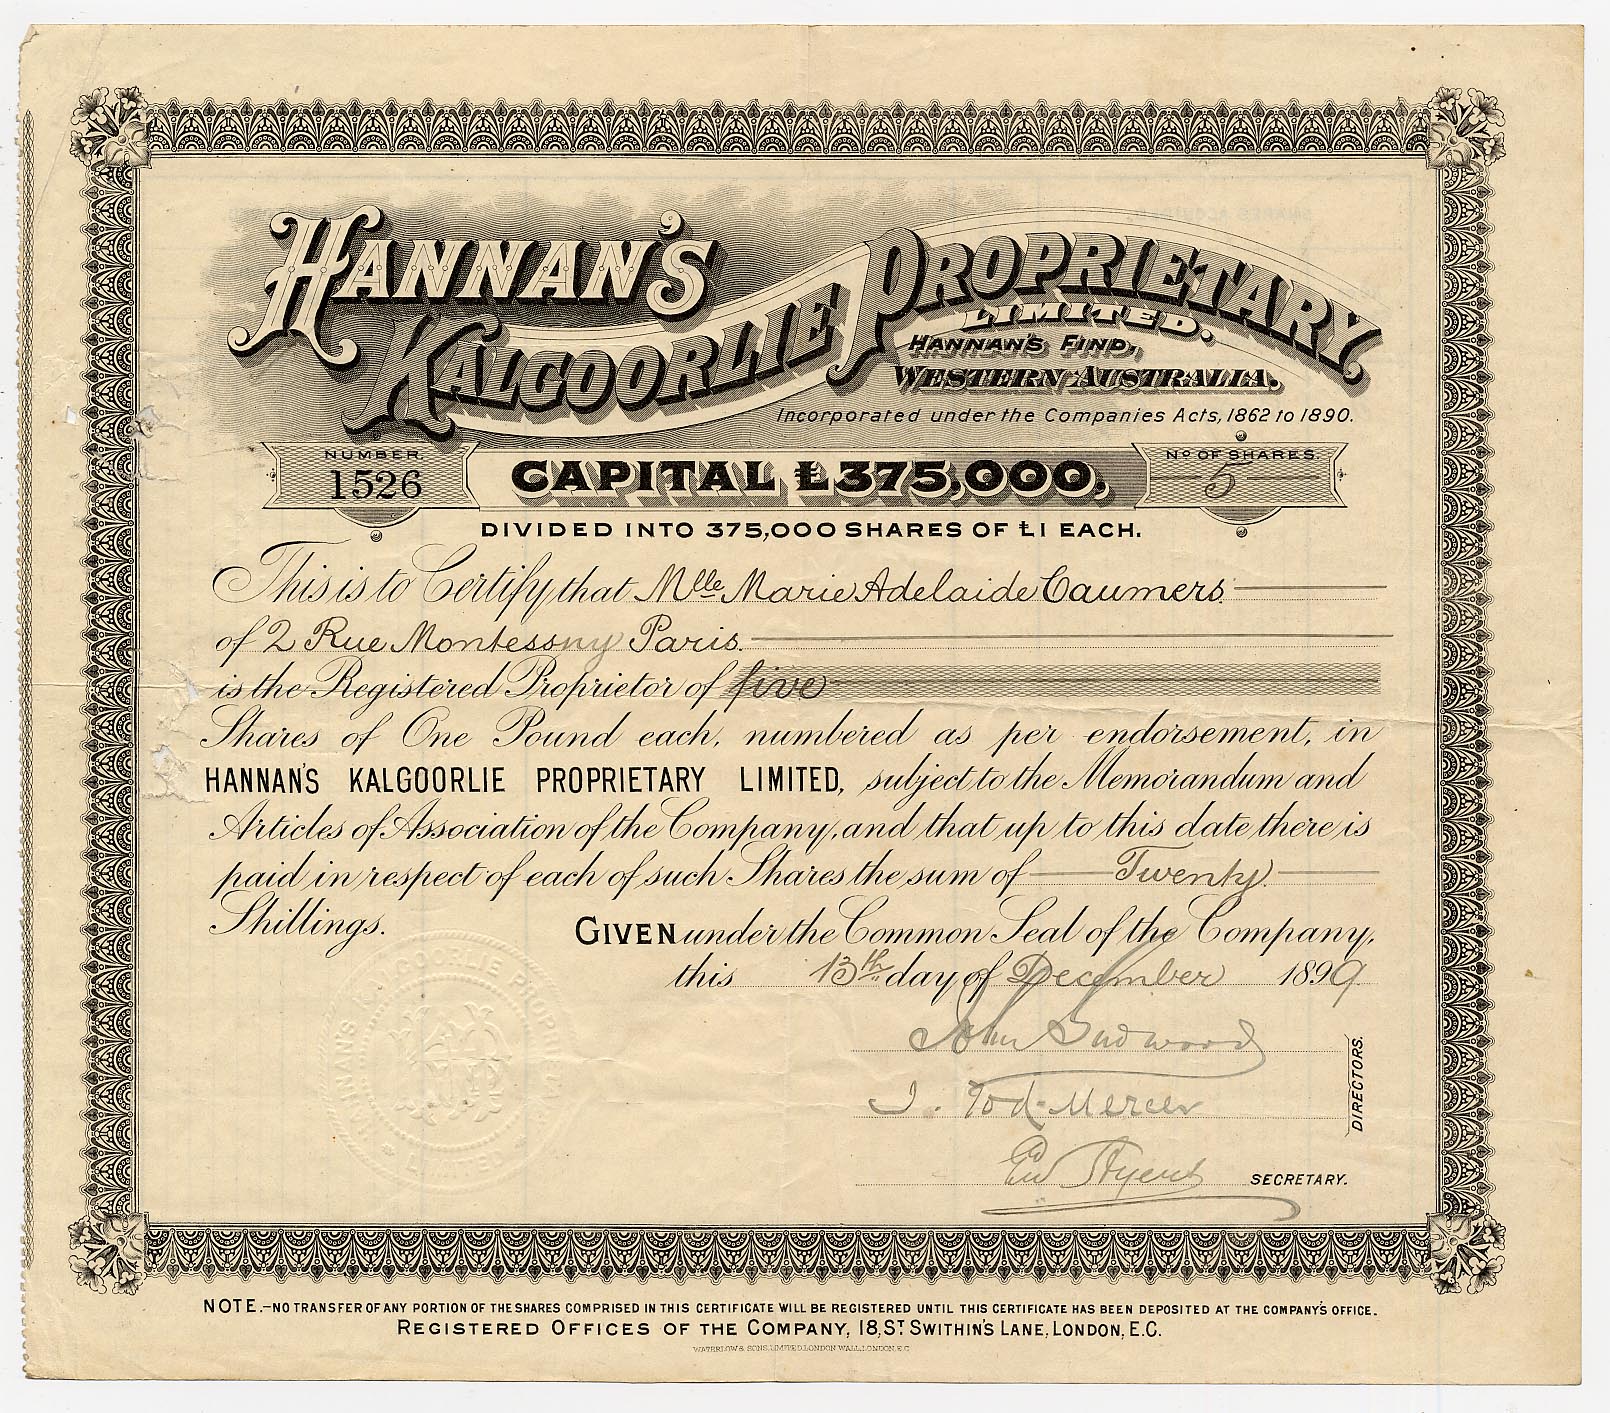 HANNAN'S
KALGOORLIE PROPRIETARY
LIMITED.
HANNAN'S FIND,
WESTERN AUSTRALIA.
Incorporated under the Companies Acts, 1862 to 1890.
NUMBER.
1526
CAPITAL £375,000,
No OF SHARES.
5
DIVIDED INTO 375,000 SHARES OF £1 EACH.
This is to Certify that Mlle Marie Adelaide Caumers
of 2 Rue Montessny Paris.
is the Registered Proprietor of five
Shares of One Pound each, numbered as per endorsement, in
HANNAN'S KALGOORLIE PROPRIETARY LIMITED, subject to the Memorandum and
Articles of Association of the Company, and that up to this date there is
paid in respect of each of such Shares the sum of Twenty
Shillings.
GIVEN under the Common Seal of the Company,
this 13th day of December 1899
John
J. Tod-Mercer
DIRECTORS.
SECRETARY.
HANNAN'S KALGOORLIE PROPRIETARY
LIMITED
NOTE.—NO TRANSFER OF ANY PORTION OF THE SHARES COMPRISED IN THIS CERTIFICATE WILL BE REGISTERED UNTIL THIS CERTIFICATE HAS BEEN DEPOSITED AT THE COMPANY'S OFFICE.
REGISTERED OFFICES OF THE COMPANY, 18, ST SWITHIN'S LANE, LONDON, E.C.
WATERLOW & SONS, LIMITED, LONDON WALL, LONDON, E.C